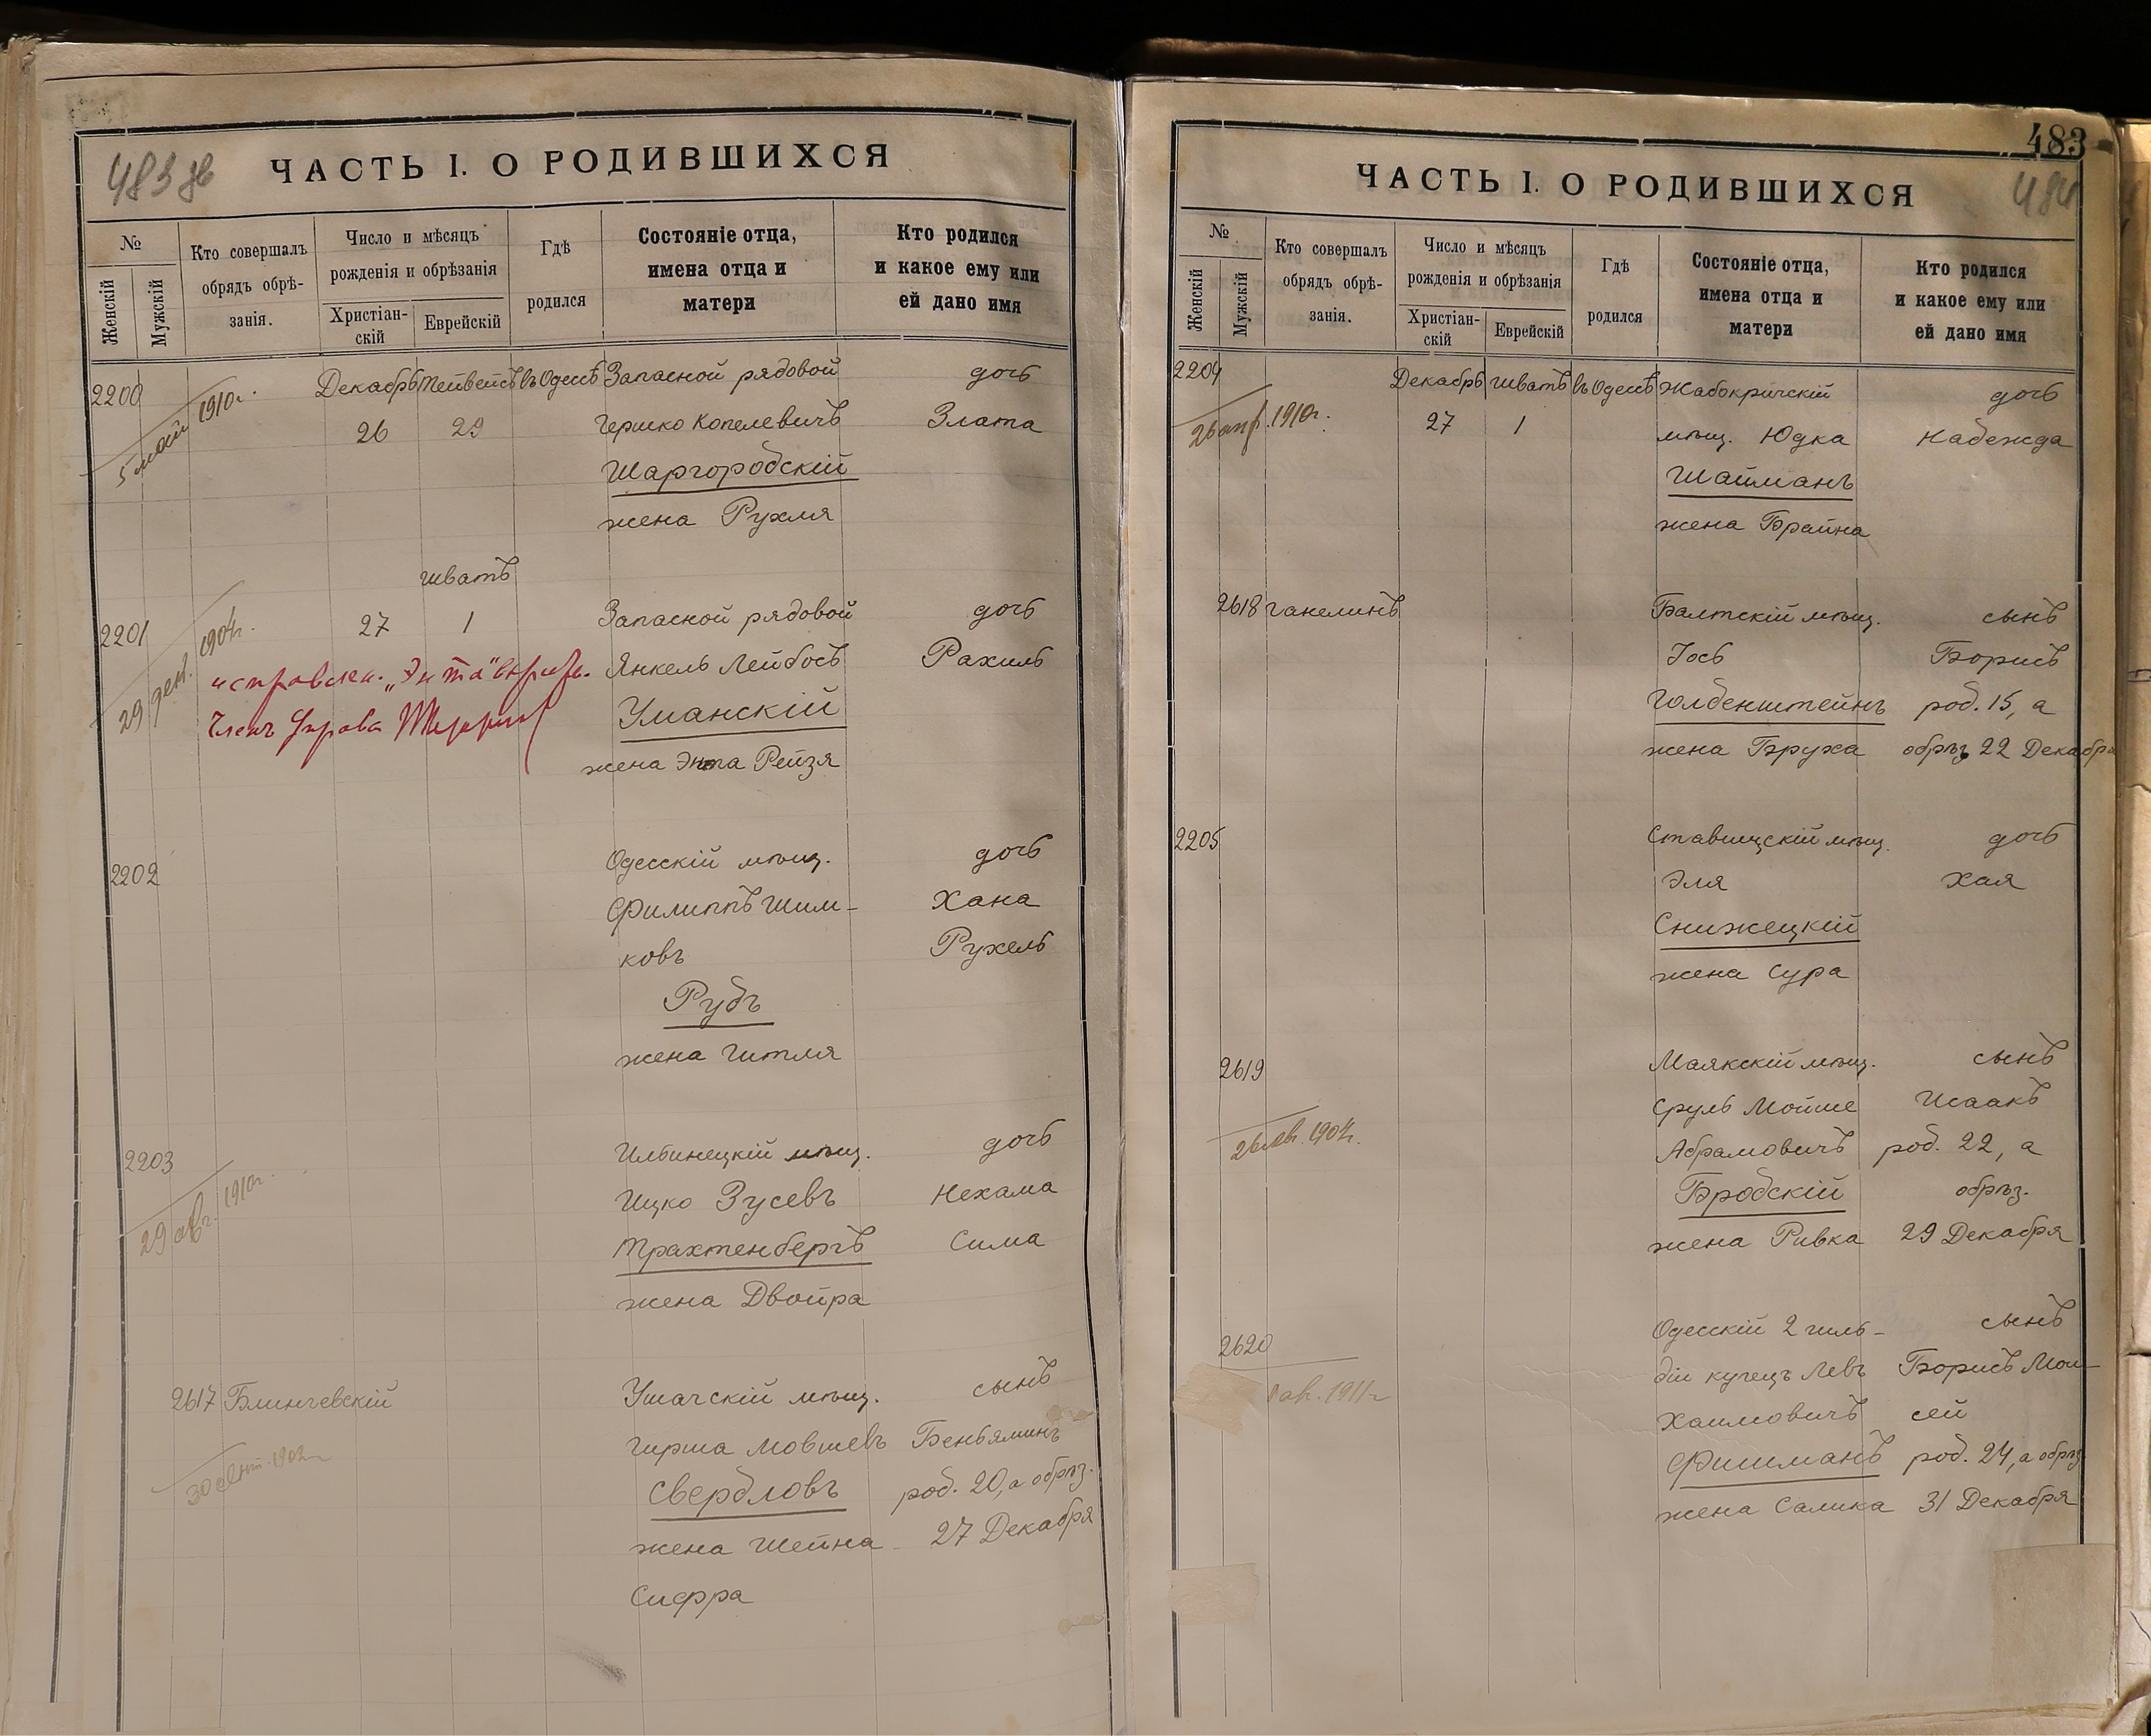 483 об
ЧАСТЬ I. О РОДИВШИХСЯ
№
Женскій
Мужскій
Кто совершалъ
обрядъ обрѣ-
занія.
Число и мѣсяцъ
рожденія и обрѣзанія
Христіан-
скій
Еврейскій
Гдѣ
родился
Состояніе отца,
имена отца и
матери
Кто родился
и какое ему или
ей дано имя
2200 Декабрь Тейвейсъ въ Одессѣ Запасной рядовой дочь
5 мая 1910г. 26 29 Гершко Копелевичъ Злата
Шаргородскій
жена Рухля
Шватъ
2201 27 1 Запасной рядовой дочь
29 дек. 1904г. Янкель Лейбовъ Рахиль
исправлен. „Энта"
Членъ Управы
Уманскій
жена Энта Рейзя
2202 Одесскій мѣщ. дочь
Филиппъ Шим- Хана
ковъ Рухель
Рудъ
жена Гитля
2203 Ильинецкій мѣщ. дочь
29 авг. 1910г. Ицко Зусевъ Нехама
Трахтенбергъ Сима
жена Двойра
2617 Блинчевскій Ушачскій мѣщ. сынъ
Гирша Мовшевъ Беньяминъ
Свердловъ род. 20, а обрѣз.
жена Шейна 27 Декабря
Сифра
483
484
ЧАСТЬ I. О РОДИВШИХСЯ
№
Женскій
Мужскій
Кто совершалъ
обрядъ обрѣ-
занія.
Число и мѣсяцъ
рожденія и обрѣзанія
Христіан-
скій
Еврейскій
Гдѣ
родился
Состояніе отца,
имена отца и
матери
Кто родился
и какое ему или
ей дано имя
2204 Декабрь Шватъ въ Одессѣ Жабокричскій дочь
1910г. 27 1 мѣщ. Юдка Надежда
Шайманъ
жена Брайна
2618 Ганелинъ Балтскій мѣщ. сынъ
Іосъ Борисъ
Голденштейнъ род. 15, а
жена Бруха обрѣз 22 Декабря
2205 Ставищскій мѣщ. дочь
Эля Хая
Снижецкій
жена Сура
2619 Маякскій мѣщ. сынъ
Сруль Мойше Исаакъ
26 1904г. Абрамовичъ род. 22, а
Бродскій обрѣз.
жена Ривка 29 Декабря
2620 Одесскій 2 гиль- сынъ
діи купецъ Левъ Борисъ Мои-
1911г Хаимовичъ сей
Фишманъ род. 24, а обрѣз
жена Салика 31 Декабря